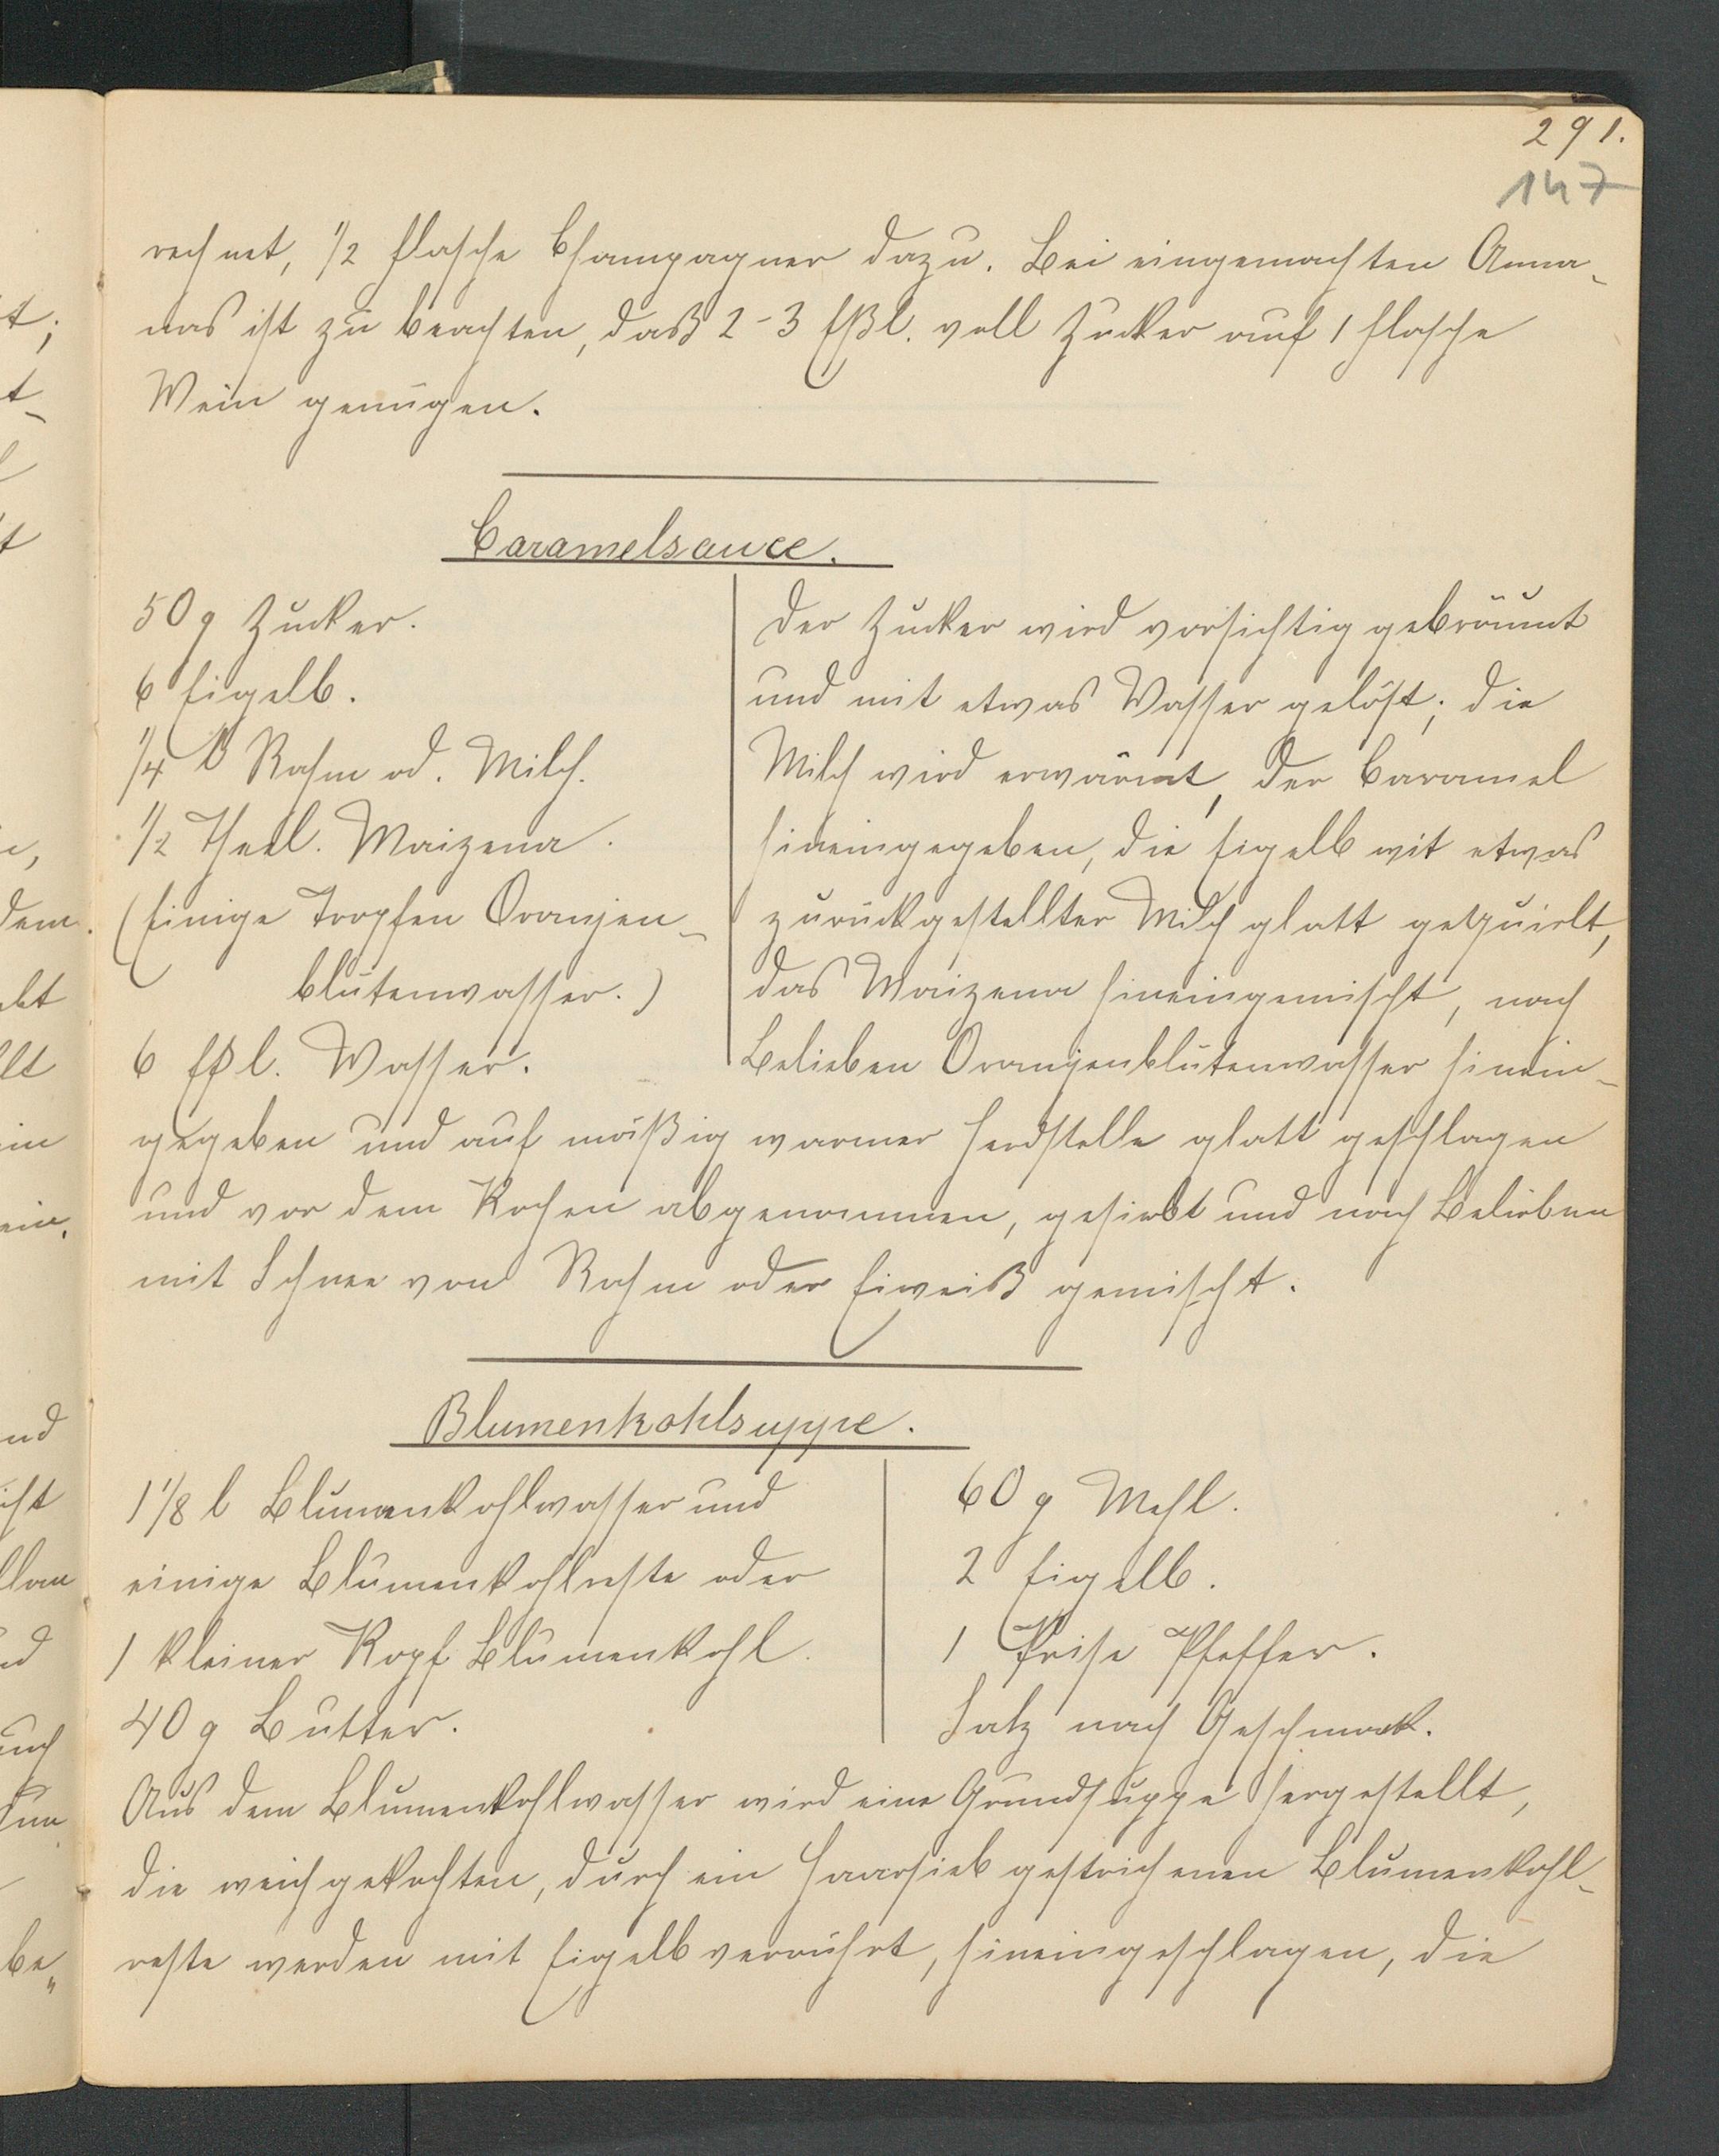 291.
147
rechnet, 1/2 Flasche Champagner dazu. Bei eingemachten Anna-
nas ist zu beachten, daß 2-3 Eßl. voll Zucker auf 1 Flasche
Wein genügen.
Caramelsauce.
50 g Zucker.
6 Eigelb.
1/4 l Rahm od. Milch.
1/2 Theel. Maizena.
(Einige Tropfen Oranjen-
blütenwasser.)
6 Eßl. Wasser.
Der Zucker wird vorsichtig gebräunt
und mit etwas Wasser gelöst; die
Milch wird erwärmt, der Caramel
hineingegeben, die Eigelb mit etwas
zurückgestellter Milch glatt gequirlt,
das Maizena hineingemischt, nach
Belieben Oranjenblütenwasser hinein-
gegeben und auf mäßig warmer Herdstelle glatt geschlagen
und vor dem Kochen abgenommen, gesiebt und nach Belieben
mit Schnee von Rahm oder Eiweiß gemischt.
Blumenkohlsuppe.
1 1/8 l Blumenkohlwasser und
einige Blumenkohlreste oder
1 kleiner Kopf Blumenkohl.
40 g Butter.
60 g Mehl.
2 Eigelb.
1 Prise Pfeffer.
Salz nach Geschmack.
Aus dem Blumenkohlwasser wird eine Grundsuppe hergestellt,
die weichgekochten, durch ein Haarsieb gestrichenen Blumenkohl-
reste werden mit Eigelb verrührt, hineingeschlagen, die